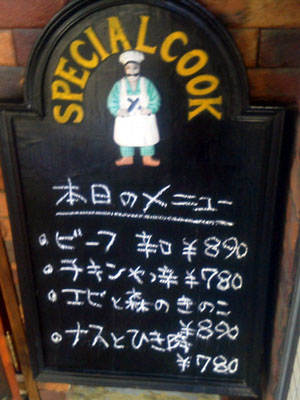 SPECIAL COOK
本日のメニュー
・ビーフ 辛口 ¥890
・チキンやや辛 ¥780
・エビと森のきのこ
¥890
・ナスとひき肉
¥780